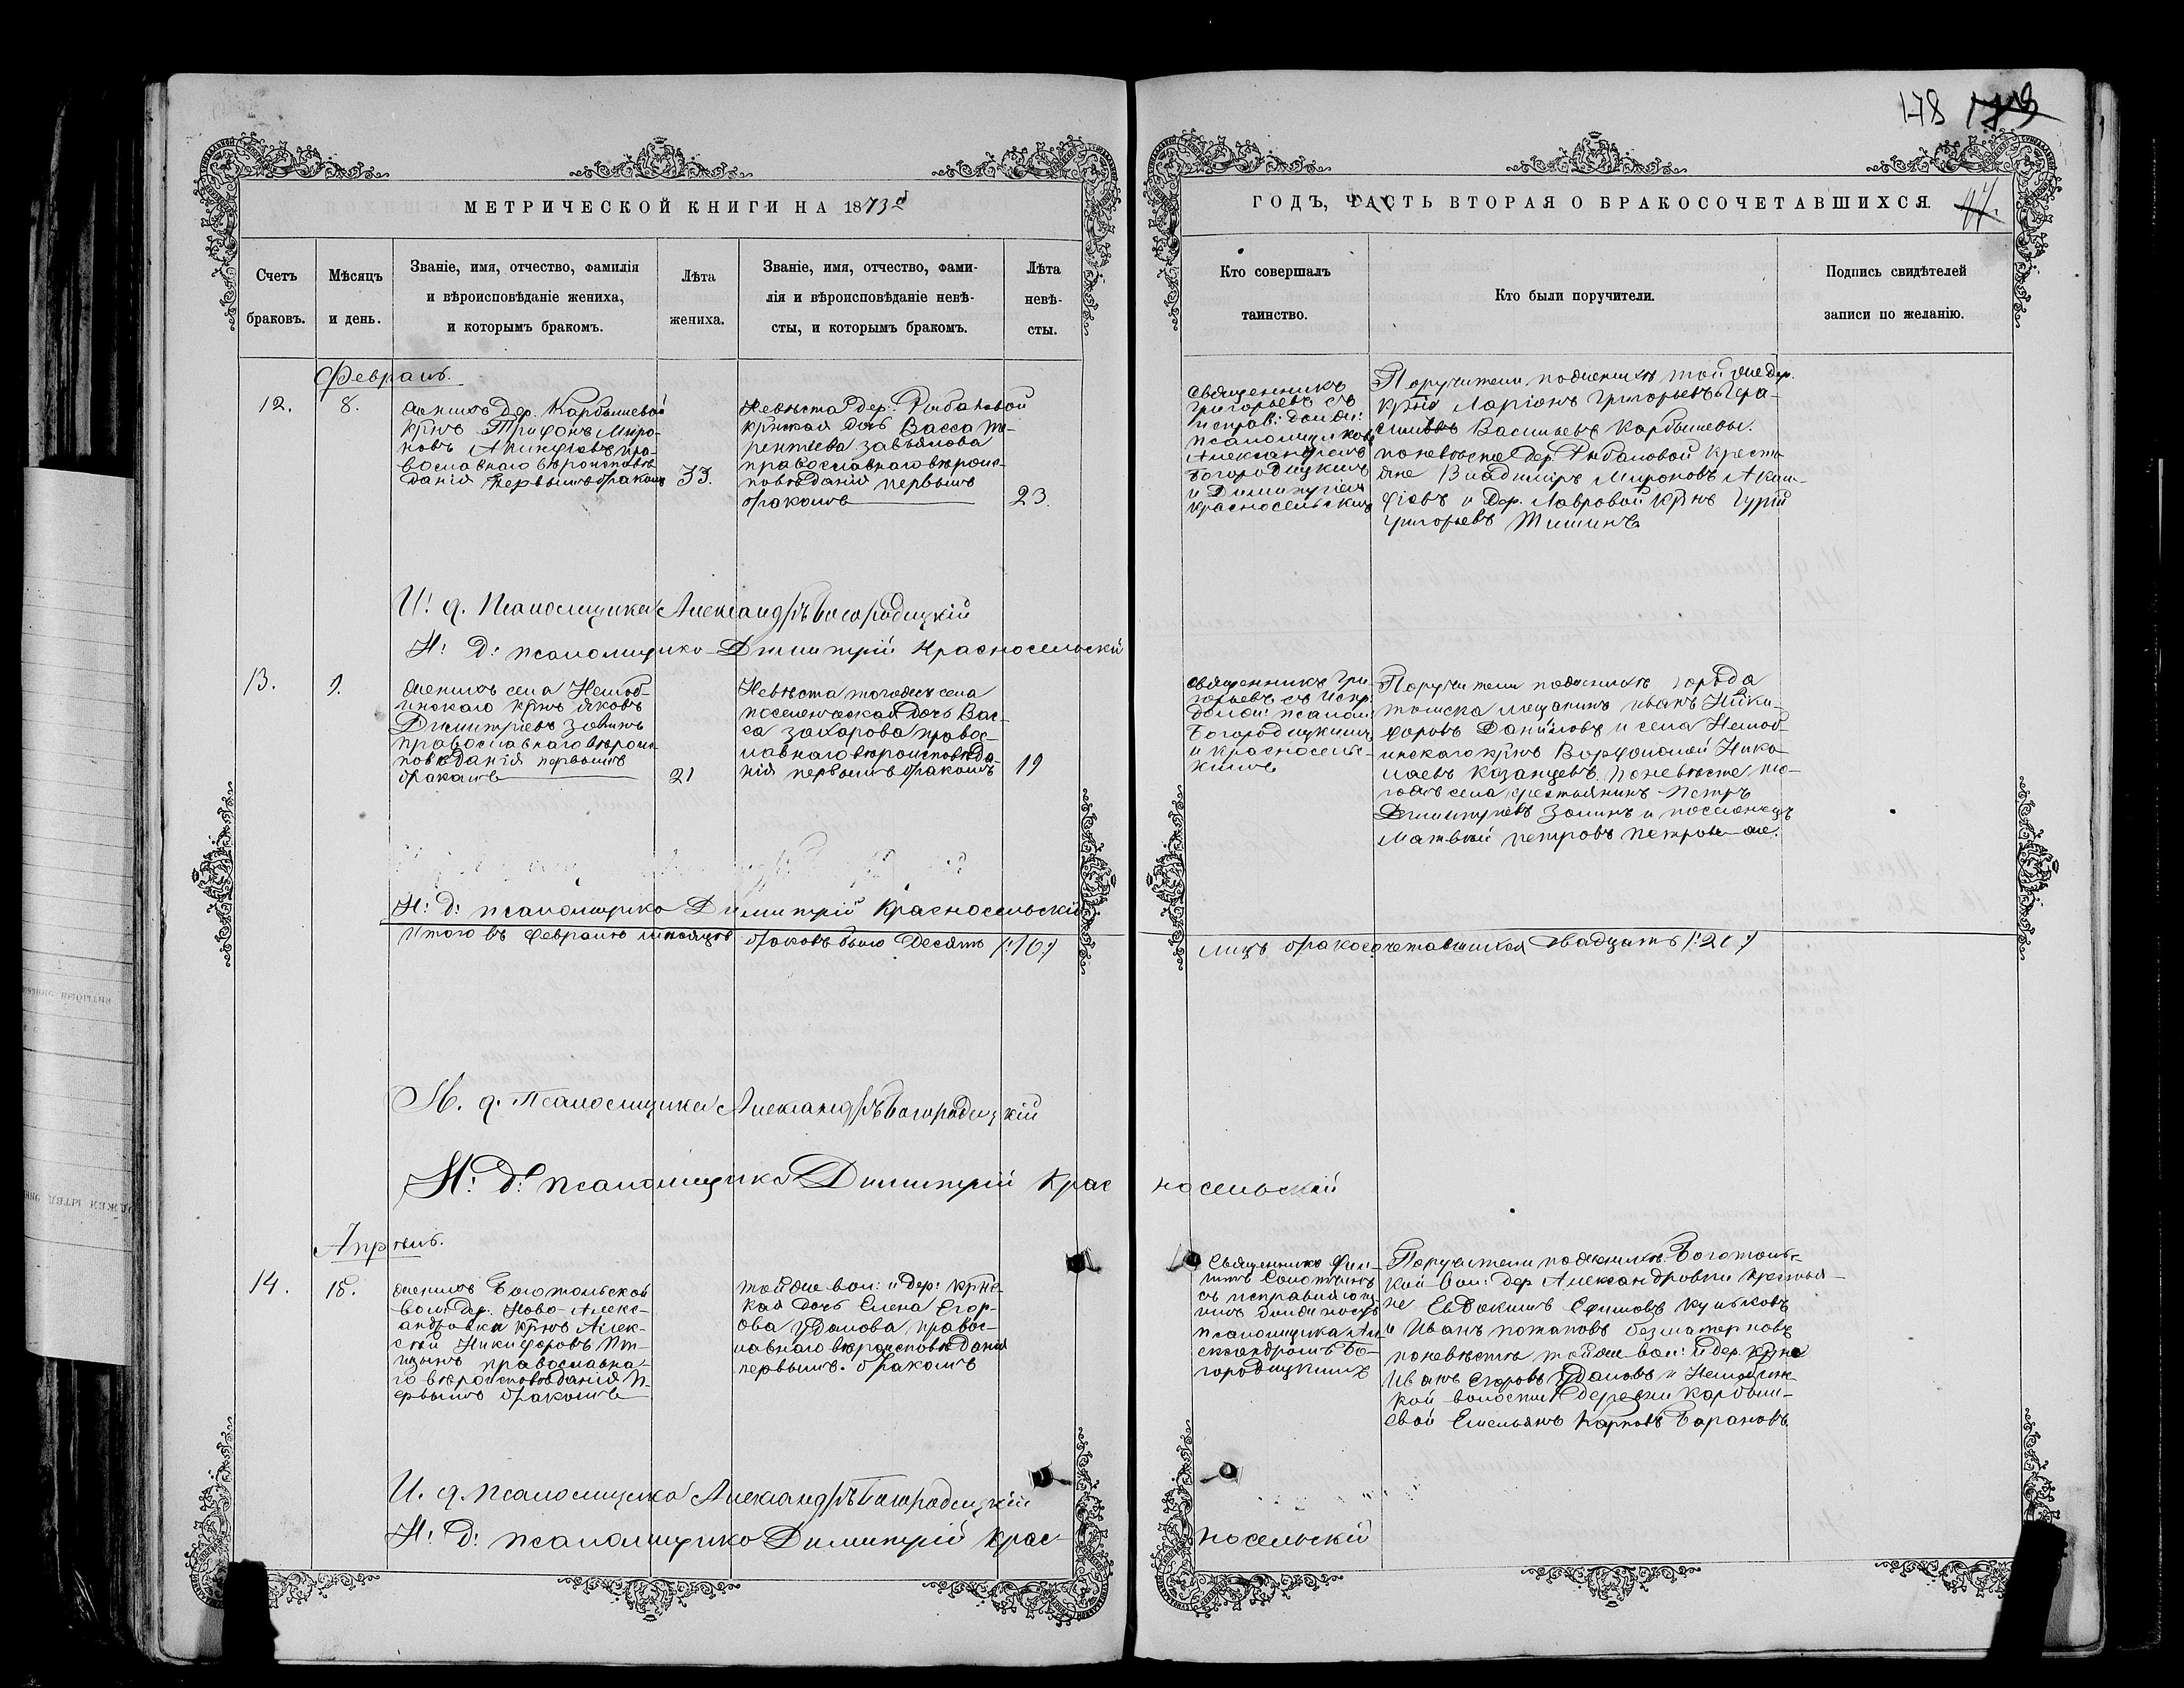 178
МЕТРИЧЕСКОЙ КНИГИ НА 1873й
ГОДЪ, ЧАСТЬ ВТОРАЯ О БРАКОСОЧЕТАВШИХСЯ.
Счетъ браковъ.
Мѣсяцъ и день.
Званіе, имя, отчество, фамилія
и вѣроисповѣданіе жениха,
и которымъ бракомъ.
Лѣта жениха.
Званіе, имя, отчество, фами-
лія и вѣроисповѣданіе невѣ-
сты, и которымъ бракомъ.
Лѣта невѣ-
сты.
Кто совершалъ
таинство.
Кто были поручители.
Подпись свидѣтелей
записи по желанію.
Февраль.
12.
8.
Женихъ дер. Карбышевой
крнъ Трифонъ Миро-
новъ Акинфіевъ пра-
вославнаго вѣроисповѣ-
данія первымъ бракомъ
33.
Невѣста дер. Рыбаловой
крнская дочь Васса Те-
рентьева Завьялова
православнаго вѣроис-
повѣданія первымъ
бракомъ
23.
Священникъ
Григорьевъ съ
исправ: долж:
псаломщиковъ
Александромъ
Богородицкимъ
и Димитріемъ
Красносельскимъ
Поручители по женихѣ той же дер.
крне Ларіонъ Григорьевъ и Гера-
симъ Васильевъ Карбышевы.
по невѣстѣ дер. Рыбаловой кресть-
яне Владиміръ Мироновъ Акин-
фіевъ и дер. Лавровой крнъ Гурій
Григорьевъ Тишинъ
И. д. Псаломщика Александръ Богородицкій
И: д: псаломщика Димитрій Красносельскій
13.
9.
Женихъ села Нелюб-
инскаго крнъ Яковъ
Димитріевъ Зоминъ
православнаго вѣроис-
повѣданія первымъ
бракомъ
21
Невѣста тогоже села
поселенческая дочь Вас-
са Захарова правос-
лавнаго вѣроисповѣда-
нія первымъ бракомъ
19
Священникъ Гри-
горьевъ съ испр:
долж: псалом:
Богородицкимъ
и Красносельс-
кимъ
Поручители по женихѣ города
Томска мѣщанинъ Иванъ Ники-
форовъ Даниловъ и села Нелюб-
инскаго крнъ Варфоломей Нико-
лаевъ Казанцевъ. по невѣстѣ то-
гоже села крестьянинъ Петръ
Димитріевъ Зоминъ и поселенецъ
Матвѣй Петровъ Петровъ же.
И: д: псаломщика Димитрій Красносельскій
Итого въ Февралѣ мѣсяцѣ браковъ было десять (:10:)
лицъ бракосочетавшихся двадцать (:20:)
И. д. Псаломщика Александръ Богородицкій
И: д: псаломщика Димитрій Красносельскій
Апрѣль.
14.
18.
Женихъ Боготольской
вол: дер. Ново-Алекс-
андровки крнъ Алек-
сѣй Никифоровъ Пт-
ицынъ православна-
го вѣроисповѣданія п-
ервымъ бракомъ
той же вол: и дер: крнс-
кая дочь Елена Егор-
ова Удалова, правос-
лавнаго вѣроисповѣданія
первымъ бракомъ
Священникъ Фили-
ппъ
съ исправляющ-
имъ должность
псаломщика Ал-
ександромъ Бо-
городицкимъ
Поручители по женихѣ Боготоль-
кой вол: дер Александровки крестья-
не Евдокимъ Ефимовъ Куликовъ
и Иванъ Потаповъ Безматерновъ
по невѣстѣ той же вол: и дер. крне
Иванъ Егоровъ Удаловъ и Нелюбинс-
кой волости деревни Карбыш-
евой Емельянъ Карповъ Барановъ
И. д. псаломщика Александръ Богородицкій
И: д: псаломщика Димитрій Крас-
носельскій